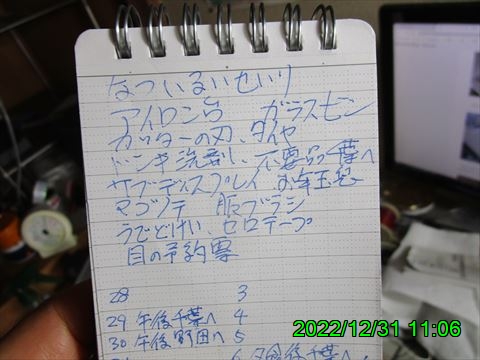 なついるいせいり
アイロン台 ガラスビン
カッターの刃、タイヤ
ドンキ洗剤、不要品千葉へ
サブディスプレイ お年玉袋
マゴノテ 服ブラシ
うでどけい、セロテープ
目の予約票
28 3
29 午後千葉へ 4
30 午後野田へ 5
6 千葉へ
2022/12/31 11:06